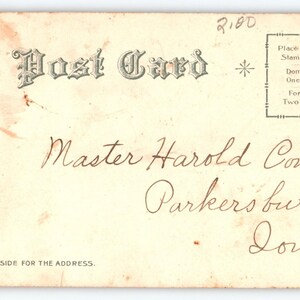 2.00
Post Card
Place
Stam
Dom
One
For
Two
Master Harold Co
Parkersbu
Iow
SIDE FOR THE ADDRESS.